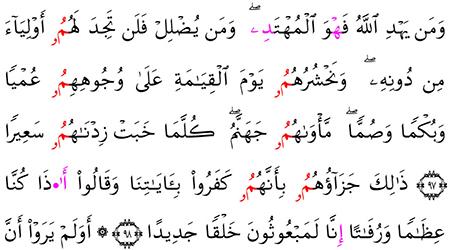 وَمَن يَهْدِ ٱللَّهُ فَهْوَ ٱلْمُهْتَدِۦۖ وَمَن يُضْلِلْ فَلَن تَجِدَ لَهُمُۥٓ أَوْلِيَآءَ
مِن دُونِهِۦۖ وَنَحْشُرُهُمُۥ يَوْمَ ٱلْقِيَٰمَةِ عَلَىٰ وُجُوهِهِمُۥ عُمْيًا
وَبُكْمًا وَصُمًّاۖ مَّأْوَىٰهُمُۥ جَهَنَّمُۖ كُلَّمَا خَبَتْ زِدْنَٰهُمُۥ سَعِيرًا
٩٧ ذَٰلِكَ جَزَآؤُهُمُۥ بِأَنَّهُمُۥ كَفَرُواْ بِـَٔايَٰتِنَا وَقَالُوٓاْ أَ•ذَا كُنَّا
عِظَٰمًا وَرُفَٰتًا إِنَّا لَمَبْعُوثُونَ خَلْقًا جَدِيدًا ٩٨ أَوَلَمْ يَرَوْاْ أَنَّ